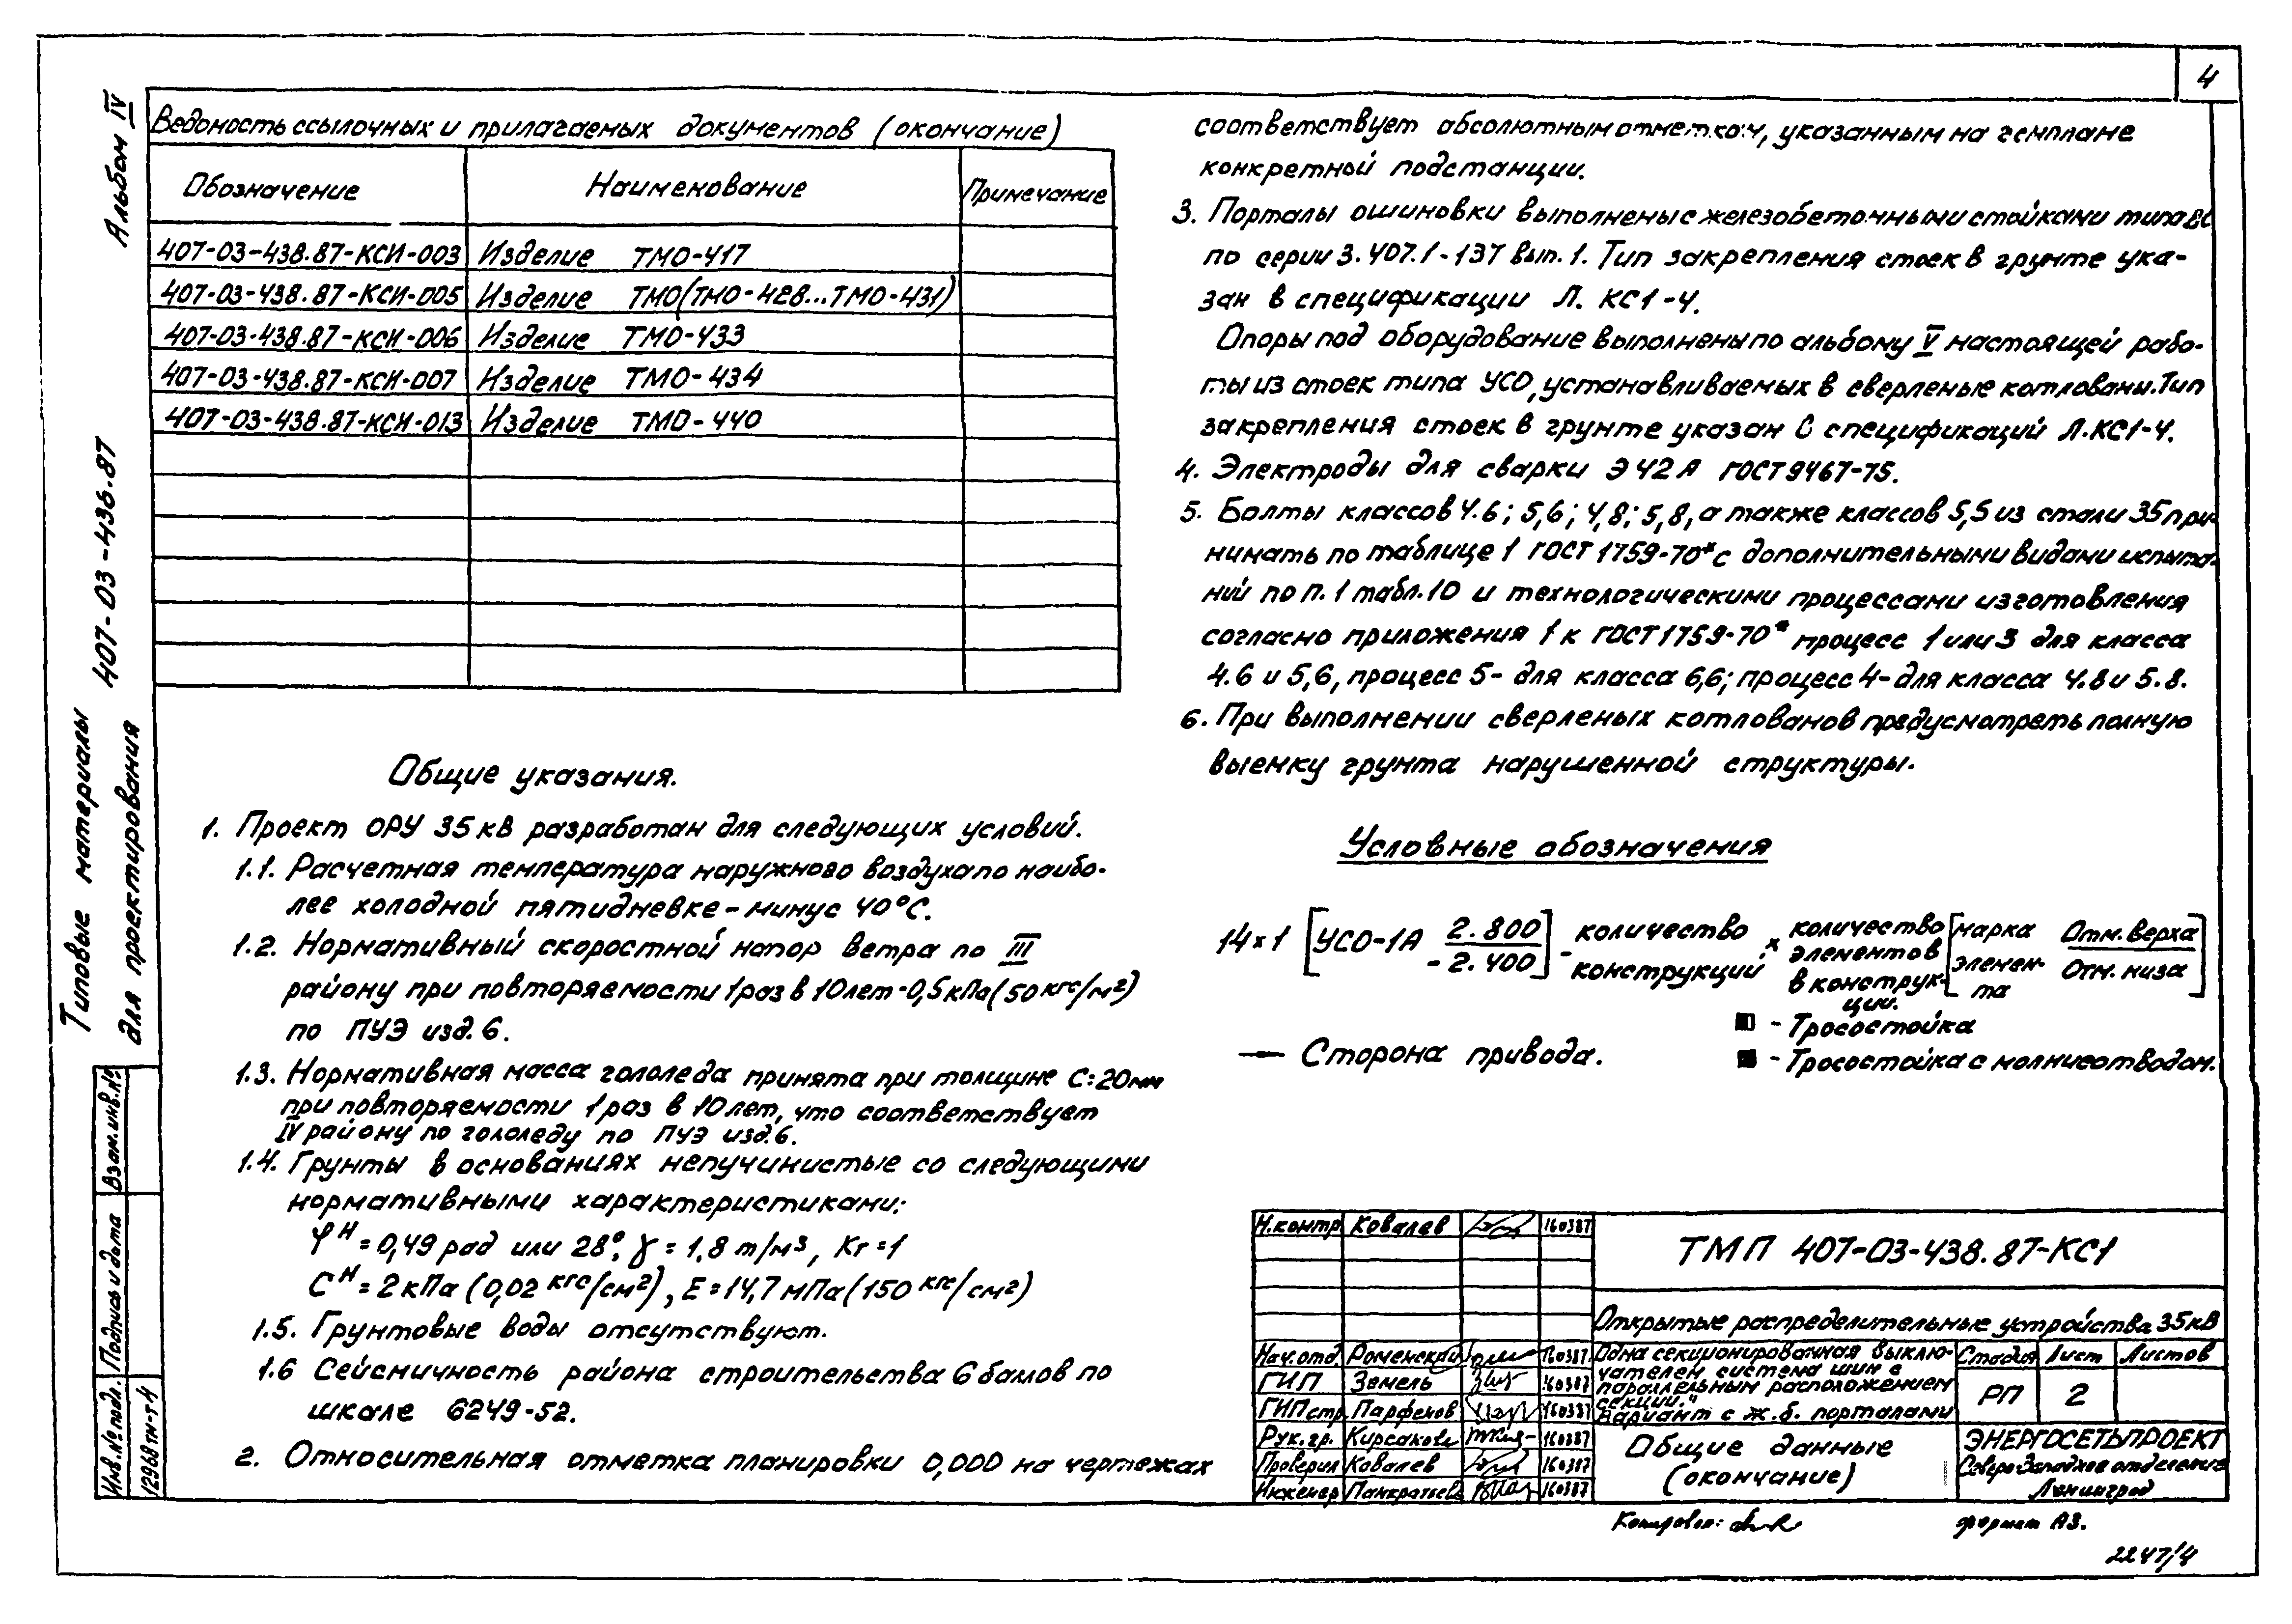 4
Альбом IV
407-03-436.87
Типовые материалы
для проектирования
Ведомость ссылочных и прилагаемых документов (окончание)
Обозначение Наименование Примечание
407-03-438.87-КСИ-003 Изделие ТМО-417
407-03-438.87-КСИ-005 Изделие ТМО(ТМО-428...ТМО-431)
407-03-438.87-КСИ-006 Изделие ТМО-433
407-03-438.87-КСИ-007 Изделие ТМО-434
407-03-438.87-КСИ-013 Изделие ТМО-440
Общие указания.
1. Проект ОРУ 35 кВ разработан для следующих условий.
1.1. Расчетная температура наружного воздуха по наибо-
лее холодной пятидневке - минус 40°С.
1.2. Нормативный скоростной напор ветра по III
району при повторяемости 1 раз в 10 лет - 0,5 кПа (50 кгс/м²)
по ПУЭ изд. 6.
1.3. Нормативная масса гололеда принята при толщине С=20мм
при повторяемости 1 раз в 10 лет, что соответствует
IV району по гололеду по ПУЭ изд.6.
1.4. Грунты в основаниях непучинистые со следующими
нормативными характеристиками:
φᴴ = 0,49 рад или 28°, γ = 1,8 т/м³, Кг = 1
Cᴴ = 2 кПа (0,02 кгс/см²), Е = 14,7 мПа (150 кгс/см²)
1.5. Грунтовые воды отсутствуют.
1.6 Сейсмичность района строительства 6 баллов по
шкале 6249-52.
2. Относительная отметка планировки 0,000 на чертежах
соответствует абсолютным отметкам, указанным на генплане
конкретной подстанции.
3. Порталы ошиновки выполнены с железобетонными стойками типа ВС
по серии 3.407.1-137 вып. 1. Тип закрепления стоек в грунте ука-
зан в спецификации Л. КС1-4.
Опоры под оборудование выполнены по альбому V настоящей рабо-
ты из стоек типа УСО, устанавливаемых в сверленые котлованы. Тип
закрепления стоек в грунте указан С спецификаций Л.КС1-4.
4. Электроды для сварки Э42А ГОСТ 9467-75.
5. Болты классов 4.6; 5,6; 4,8; 5,8, а также классов 5,5 из стали 35 при-
нимать по таблице 1 ГОСТ 1759-70* с дополнительными видами испыта-
ний по п. 1 табл. 10 и технологическими процессами изготовления
согласно приложения 1 к ГОСТ 1759-70* процесс 1 или 3 для класса
4.6 и 5,6, процесс 5- для класса 6,6; процесс 4- для класса 4.8 и 5.8.
6. При выполнении сверленых котлованов предусмотреть полную
выемку грунта нарушенной структуры.
Условные обозначения
14×1 [УСО-1А 2.800 / -2.400] - количество конструкций × количество элементов в конструк-ции. [марка элемен-та Отм. верха / Отм. низа]
→ Сторона привода.
- Тросостойка
- Тросостойка с молниеотводом.
Взам.инв.№
Подпись и дата
Инв.№ подл.
12968тм-т4
Н.контр Ковалев 160387
Нач.отд Роменский 160387
ГИП Земель 160387
ГИПстр Парфенов 160387
Рук.гр. Кирсанова 160387
Проверил Ковалев 160387
Инженер Панкратьева 160387
ТМП 407-03-438.87-КС1
Открытые распределительные устройства 35кВ
Одна секционированная выклю-
чателем система шин с
параллельным расположением
секций."
Вариант с ж.б. порталами
Стадия Лист Листов
РП 2
Общие данные
(окончание)
ЭНЕРГОСЕТЬПРОЕКТ
Северо-Западное отделение
Ленинград
Копировал:
формат А3.
2247/4